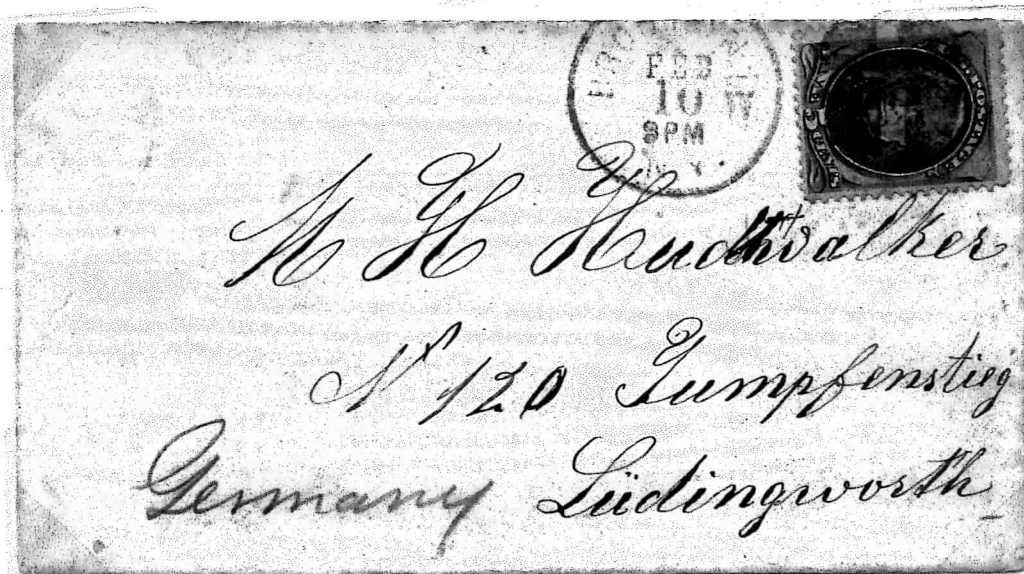 FEB
10
8PM
N.Y.
M H Hudtwalker
No 120 Jumpfenstieg
Germany Lüdingworth